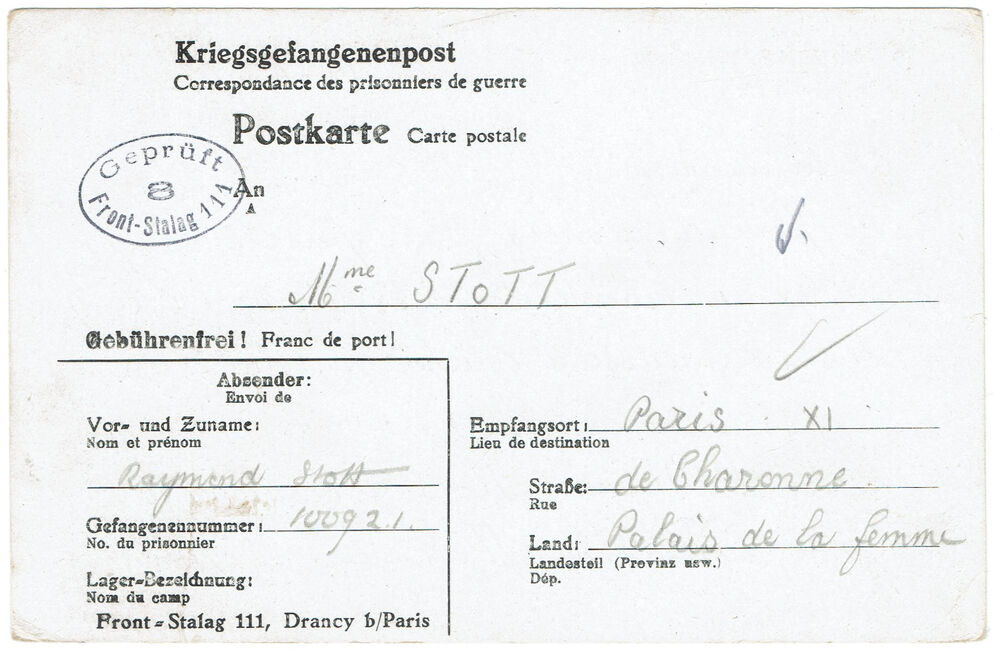 Kriegsgefangenenpost
Correspondance des prisonniers de guerre
Postkarte Carte postale
Geprüft
8
Front-Stalag 111
An
A
Mme STOTT
Gebührenfrei! Franc de port!
Absender:
Envoi de
Vor- und Zuname:
Nom et prénom
Raymond Stott
Gefangenennummer: 10092.1.
No. du prisonnier
Lager-Bezeichnung:
Nom du camp
Front-Stalag 111, Drancy b/Paris
Empfangsort: Paris XI
Lieu de destination
Straße: de Charonne
Rue
Land: Palais de la femme
Landesteil (Provinz usw.)
Dép.